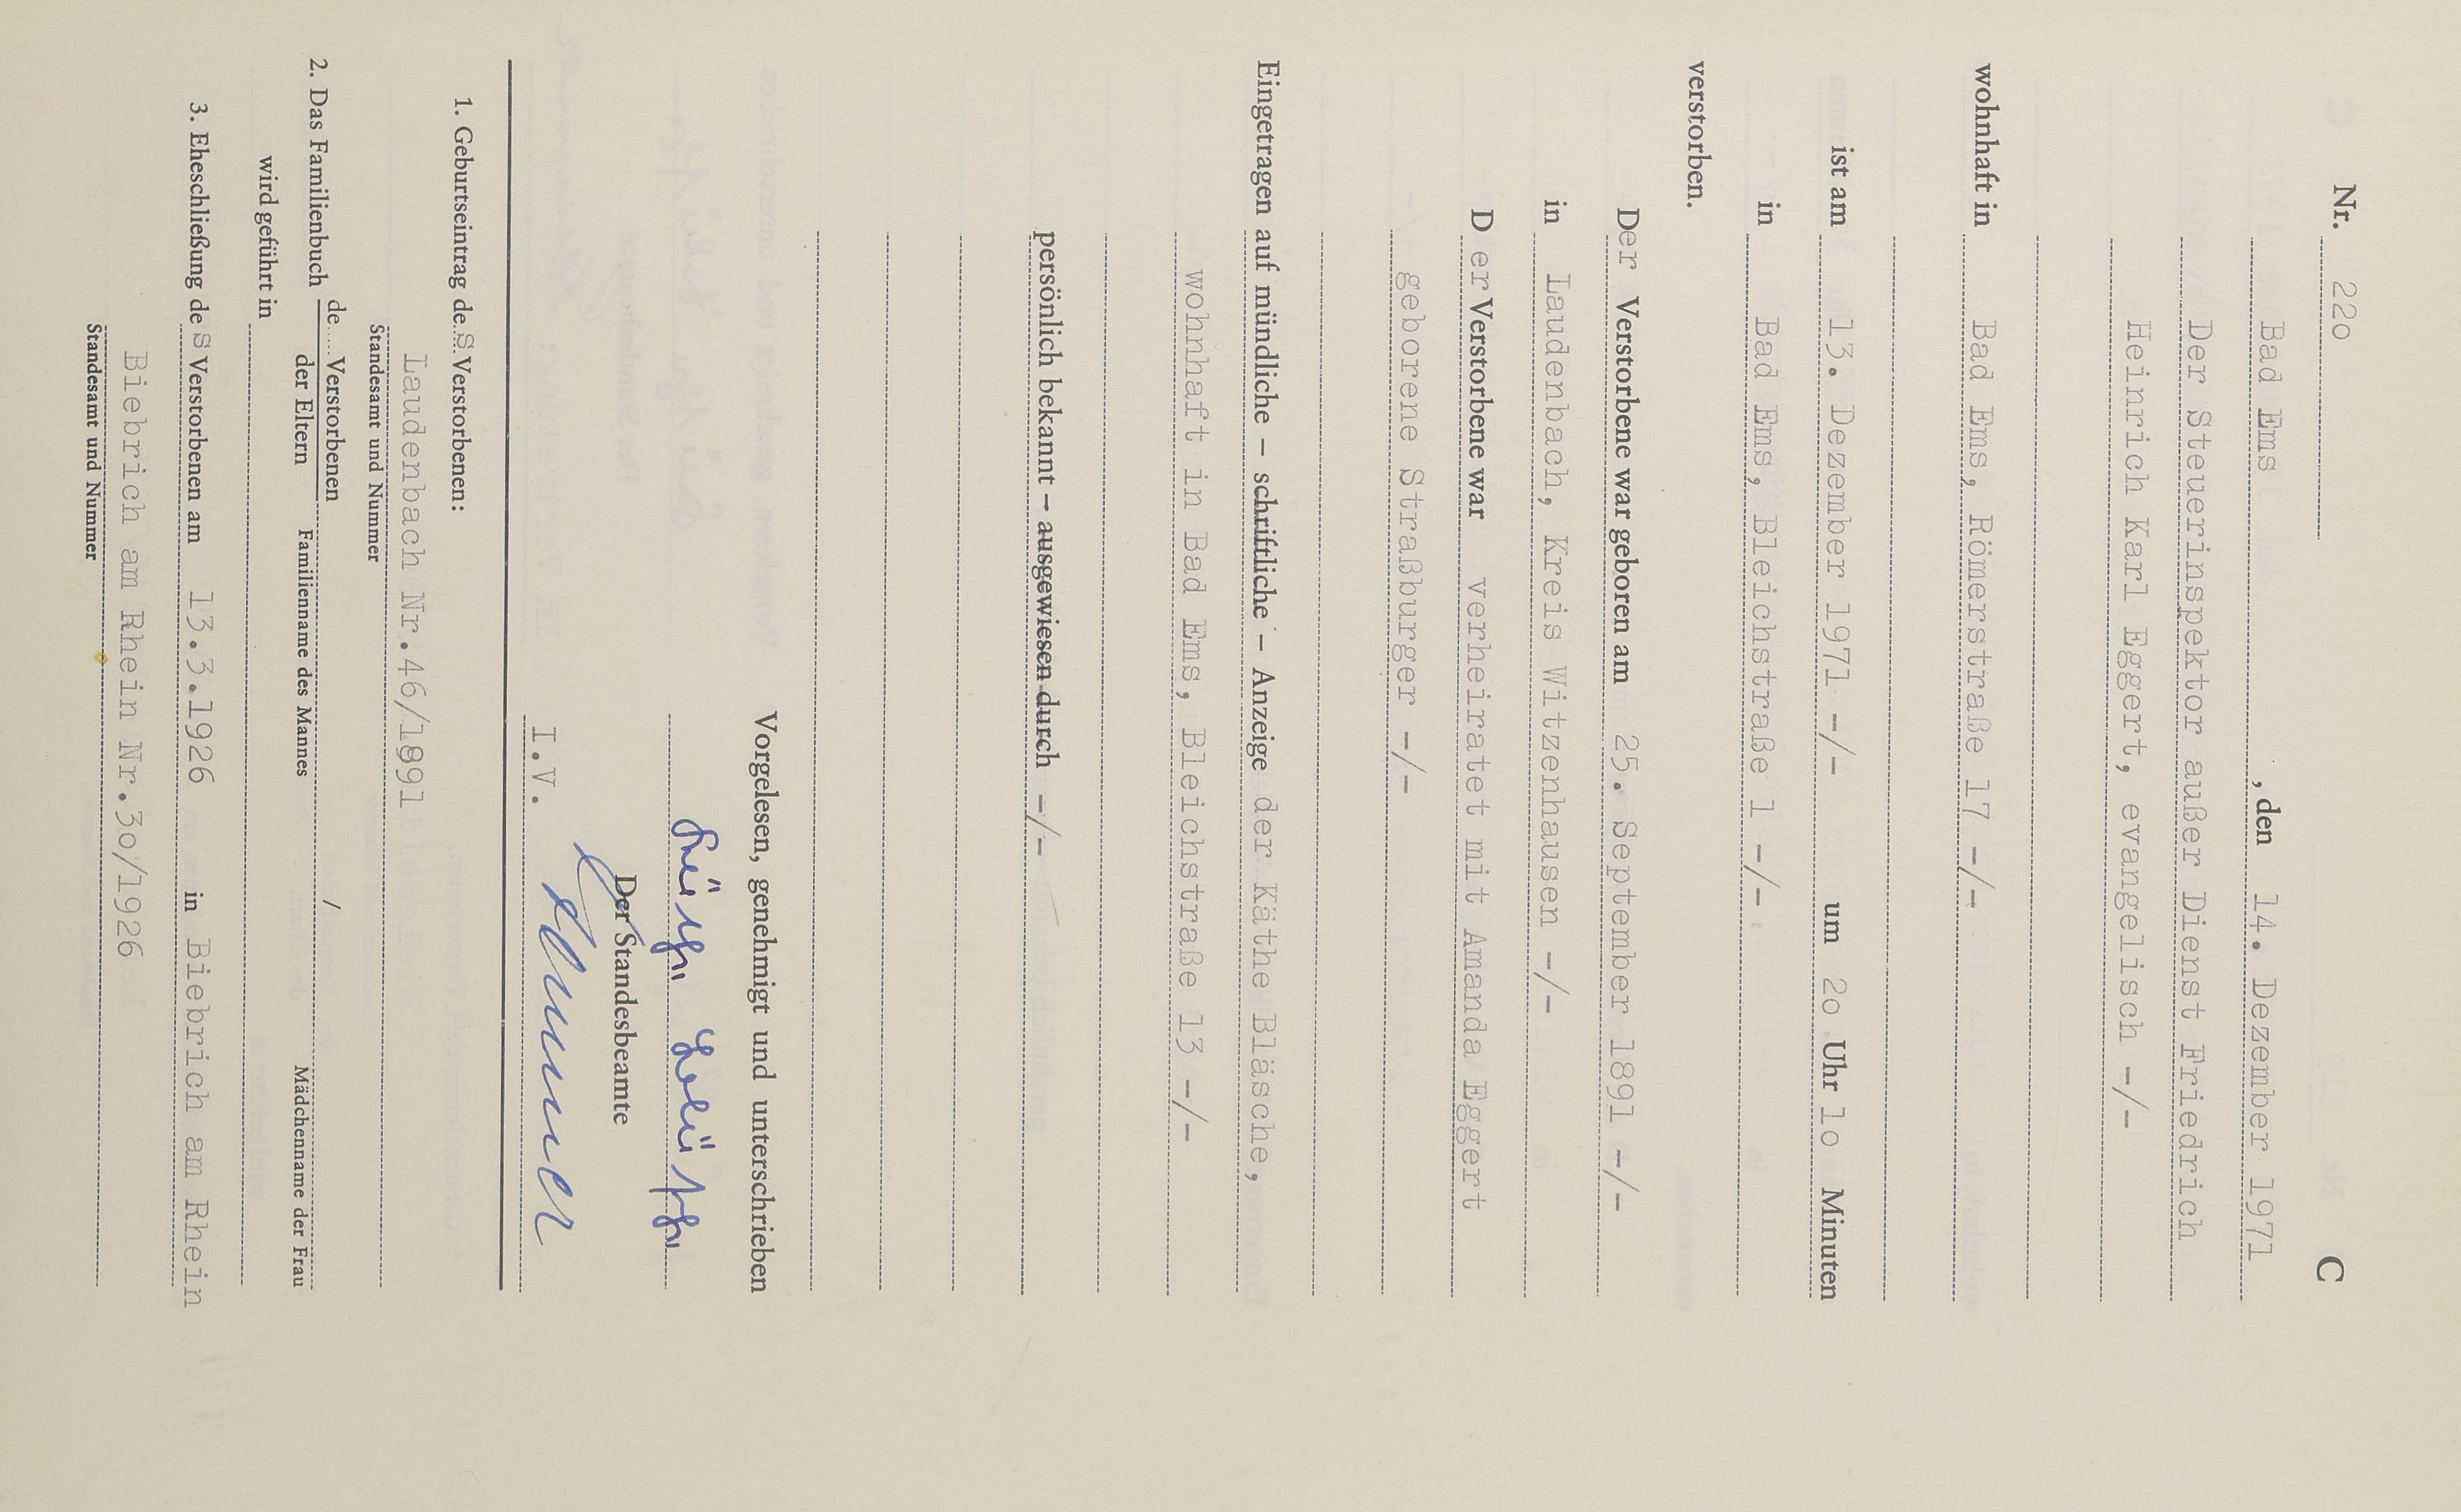 Nr. 22o C
Bad Ems , den 14. Dezember 1971
Der Steuerinspektor außer Dienst Friedrich
Heinrich Karl Eggert, evangelisch -/-
wohnhaft in Bad Ems, Römerstraße 17 -/-
ist am 13. Dezember 1971 -/- um 2o Uhr 1o Minuten
in Bad Ems, Bleichstraße 1 -/-
verstorben.
Der Verstorbene war geboren am 25. September 1891 -/-
in Laudenbach, Kreis Witzenhausen -/-
D er Verstorbene war verheiratet mit Amanda Eggert
geborene Straßburger -/-
Eingetragen auf mündliche – schriftliche – Anzeige der Käthe Bläsche,
wohnhaft in Bad Ems, Bleichstraße 13 -/-
persönlich bekannt – ausgewiesen durch -/-
Vorgelesen, genehmigt und unterschrieben
Käthe Bläsche
Der Standesbeamte
I.V.
1. Geburtseintrag des Verstorbenen:
Laudenbach Nr.46/1891
Standesamt und Nummer
2. Das Familienbuch de.... Verstorbenen /
der Eltern Familienname des Mannes Mädchenname der Frau
wird geführt in
3. Eheschließung des Verstorbenen am 13.3.1926 in Biebrich am Rhein
Biebrich am Rhein Nr.3o/1926
Standesamt und Nummer